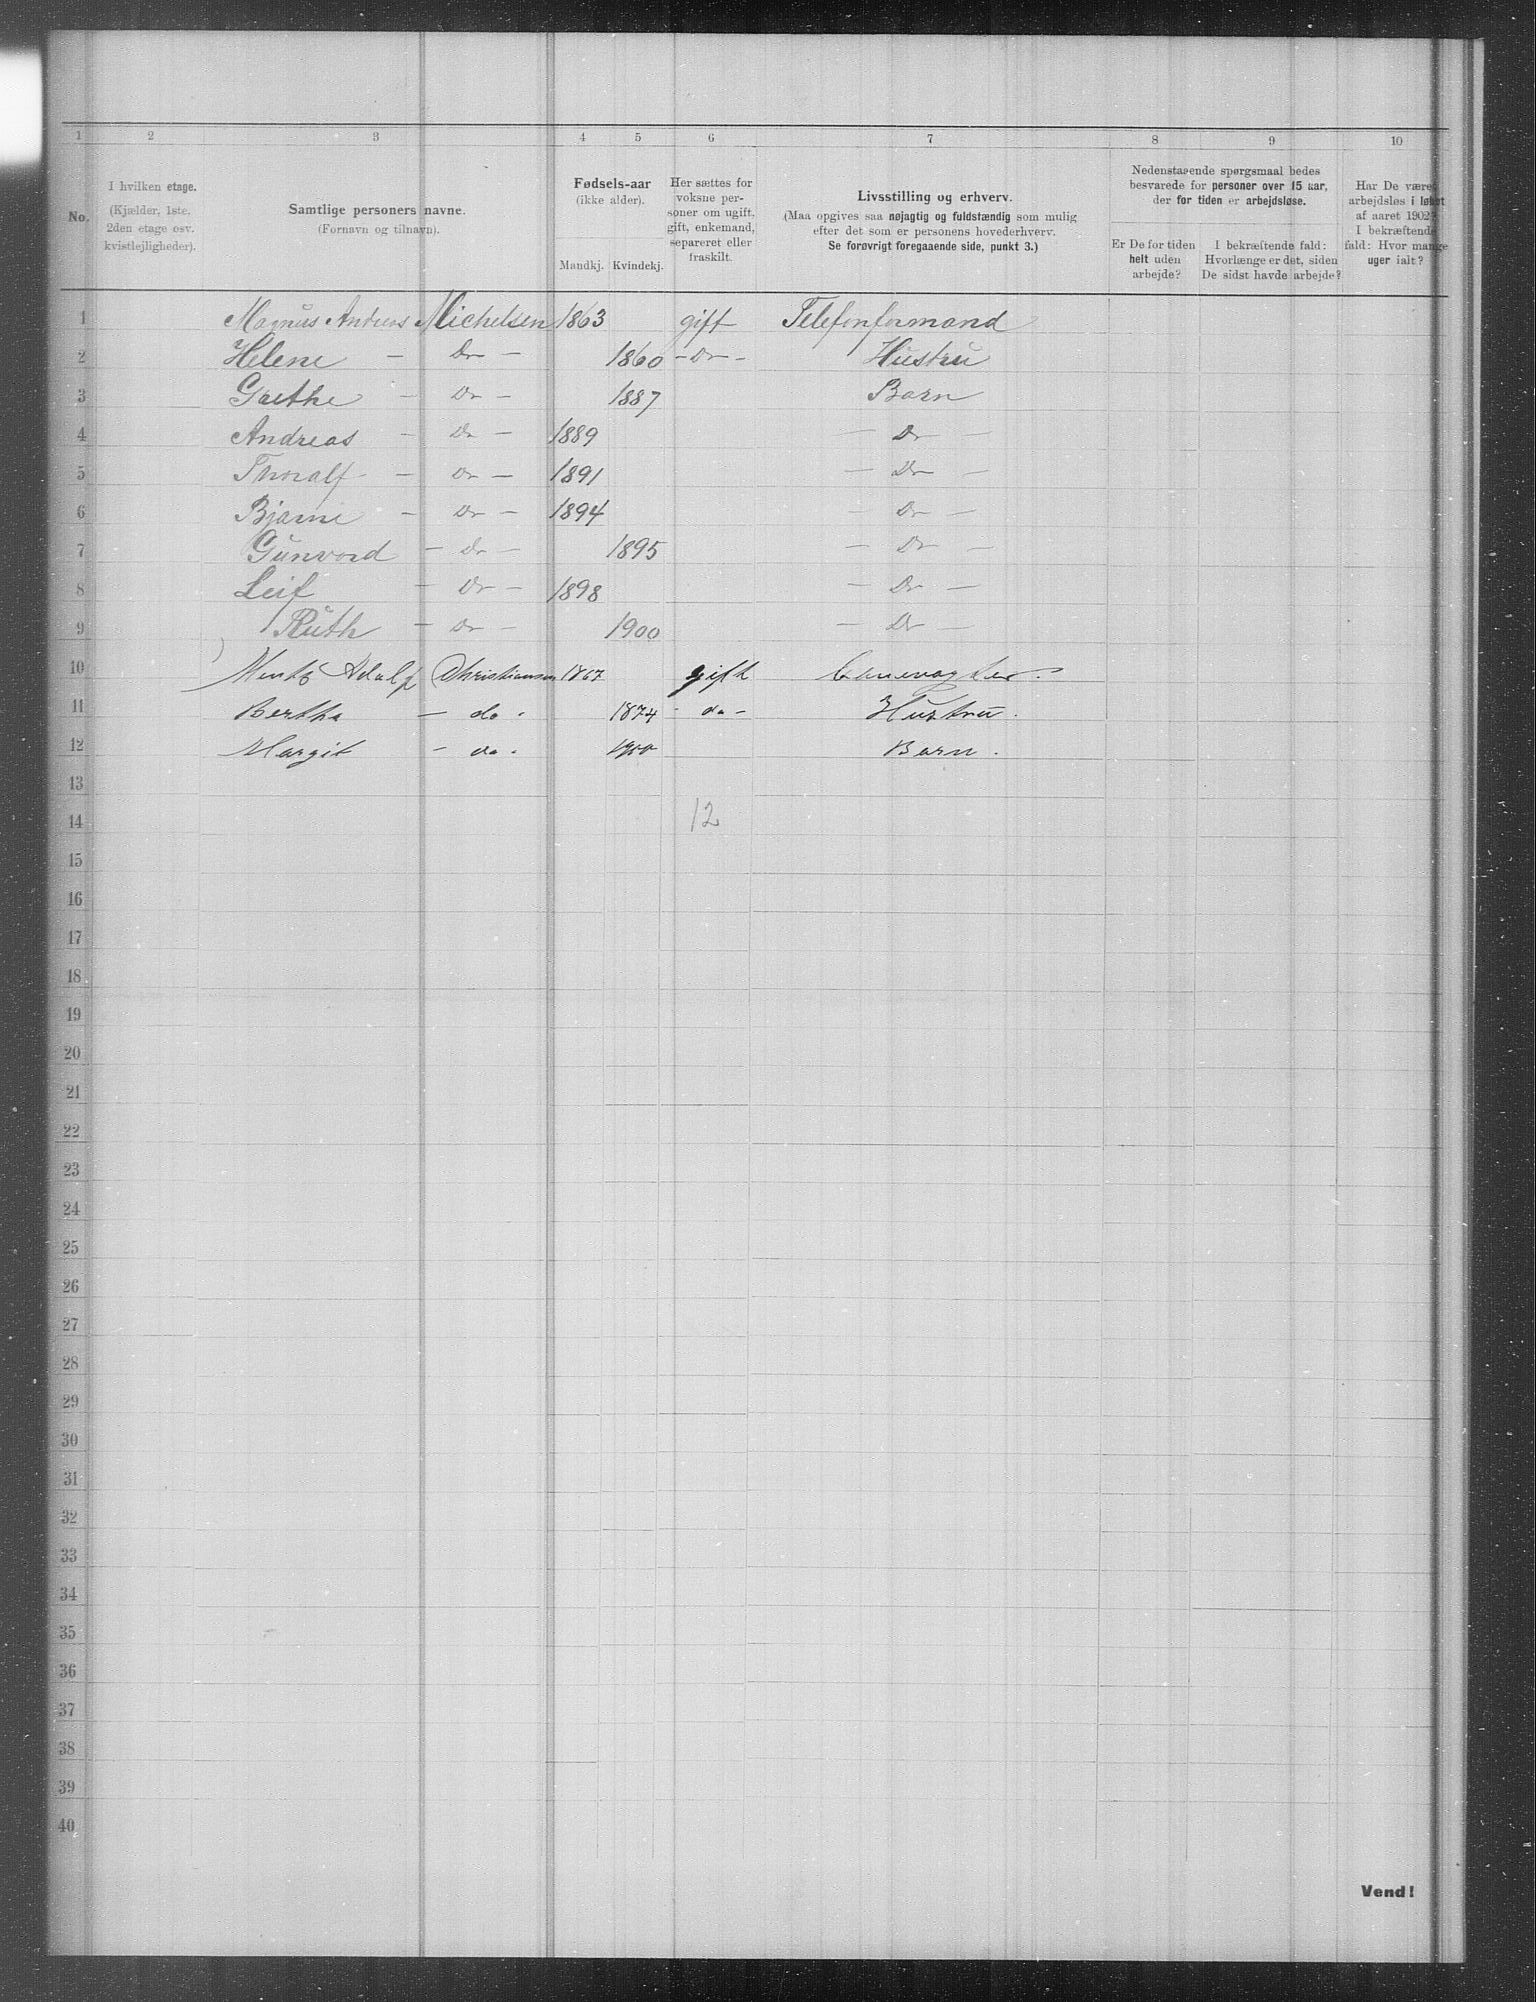 1 2 3 4 5 6 7 8 9 10
No.
I hvilken etage.
(Kjælder, 1ste.
2den etage osv.
kvistlejligheder).
Samtlige personers navne.
(Fornavn og tilnavn).
Fødsels-aar
(ikke alder).
Mandkj. Kvindekj.
Her sættes for
voksne per-
soner om ugift,
gift, enkemand,
separeret eller
fraskilt.
Livsstilling og erhverv.
(Maa opgives saa nøjagtig og fuldstændig som mulig
efter det som er personens hovederhverv.
Se forøvrigt foregaaende side, punkt 3.)
Nedenstaaende spørgsmaal bedes
besvarede for personer over 15 aar,
der for tiden er arbejdsløse.
Er De for tiden
helt uden
arbejde?
I bekræftende fald:
Hvorlænge er det, siden
De sidst havde arbejde?
Har De været
arbejdsløs i løbet
af aaret 1902?
I bekræftende
fald: Hvor mange
uger ialt?
1 Magnus Andreas Michelsen 1863 gift Telefonformand
2 Helene - Do - 1860 - Do - Hustru
3 Grethe - Do - 1887 Barn
4 Andreas - Do - 1889 - Do -
5 Thoralf - Do - 1891 - Do -
6 Bjarne - Do - 1894 - Do -
7 Gunvord - Do - 1895 - Do -
8 Leif - Do - 1898 - Do -
9 Ruth - Do - 1900 - Do -
10 Adolf Christiansen 1867 gift
11 Bertha - do - 1874 - do - Hustru.
12 Margit - do - 1900 Barn.
13
14 12
15
16
17
18
19
20
21
22
23
24
25
26
27
28
29
30
31
32
33
34
35
36
37
38
39
40
Vend!